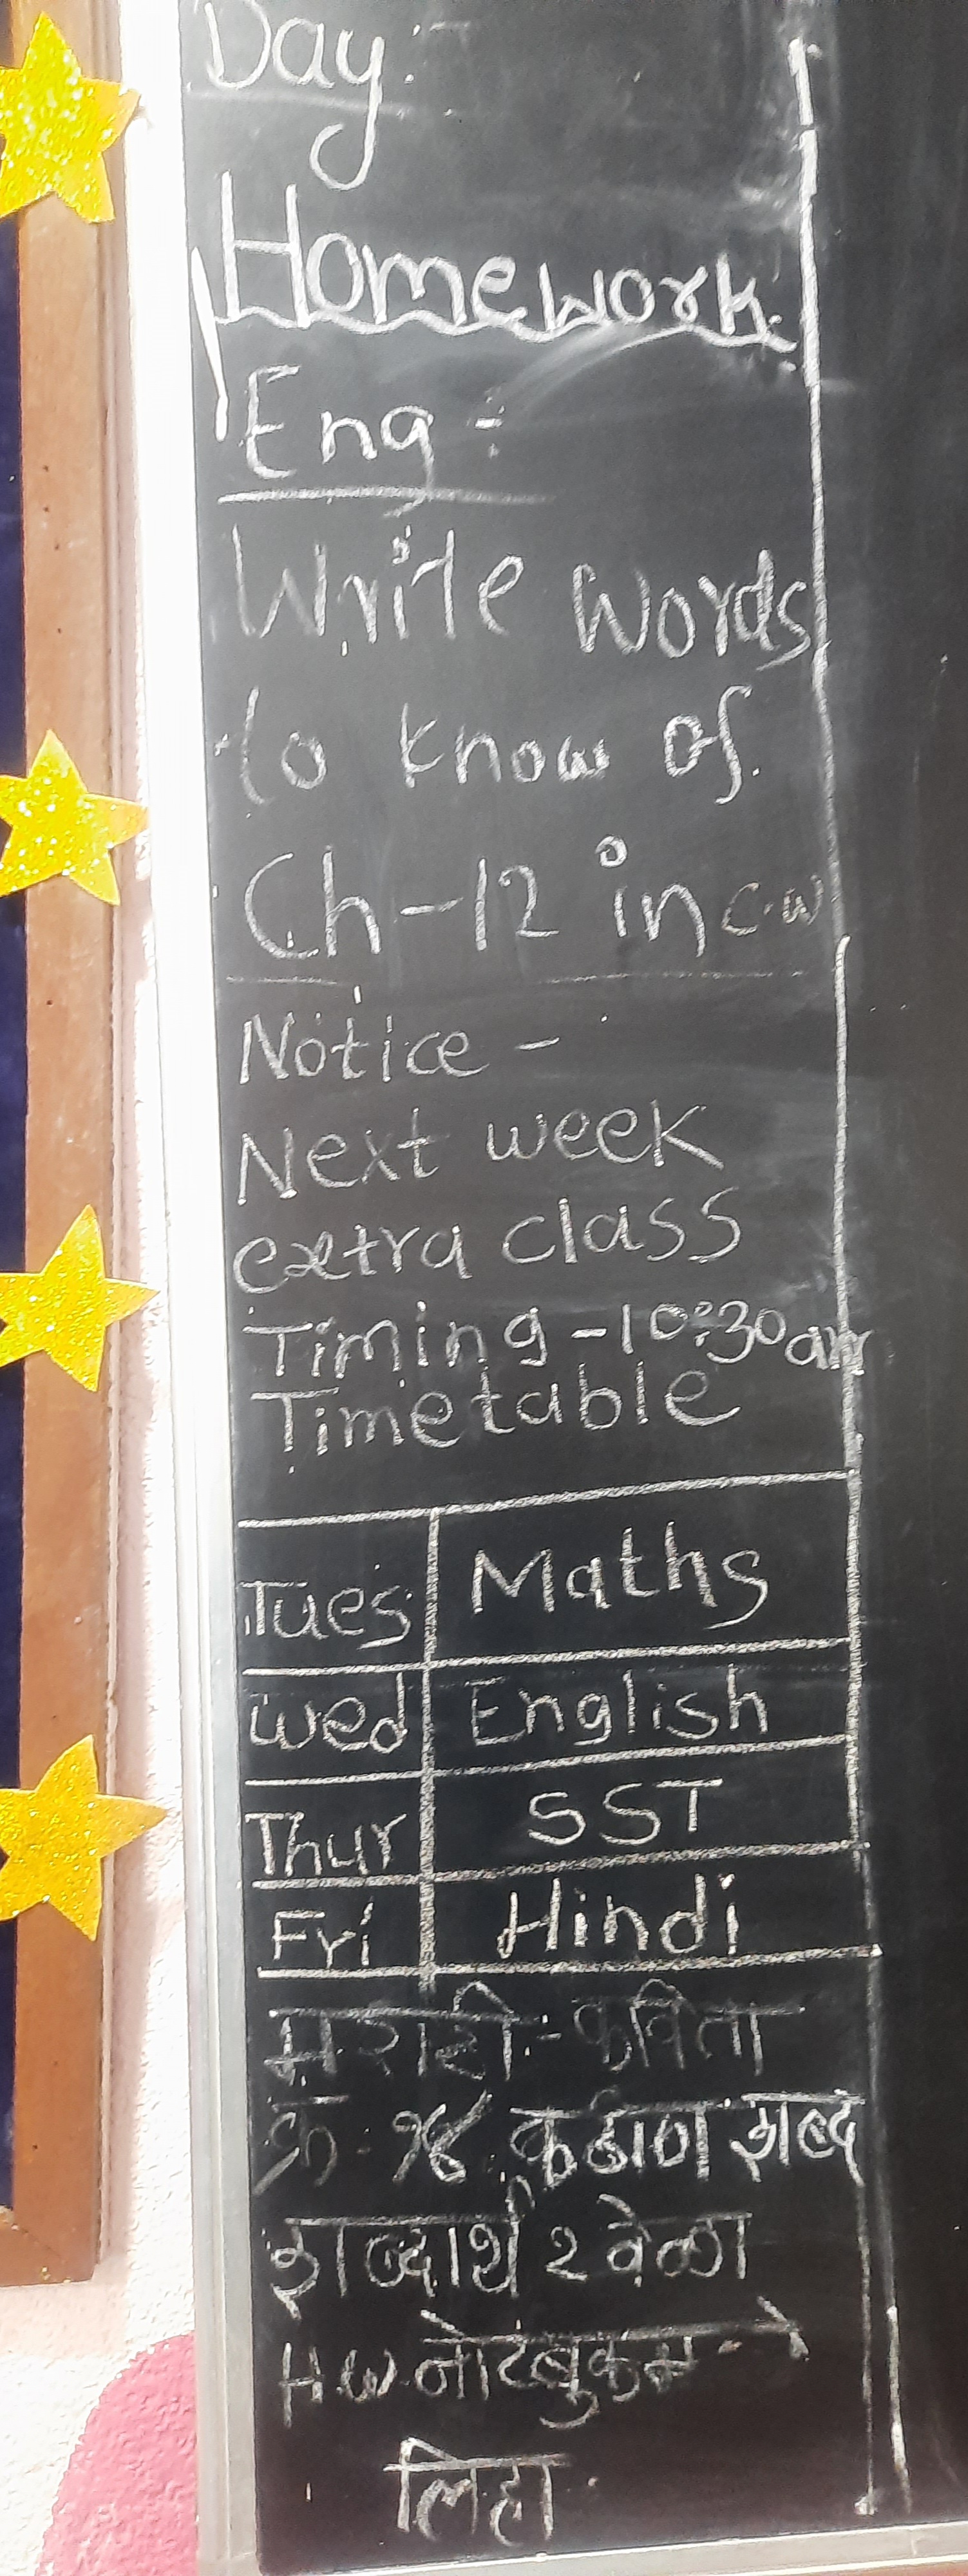 Day:-
Homework.
Eng :-
Write words
to know of
Ch-12 in c.w
Notice -
Next week
extra class
Timing - 10:30am
Timetable
Tues Maths
Wed English
Thur SST
Fri Hindi
मराठी:- कविता
क्र. १४ कठीण शब्द
शब्दार्थ २ वेळा
H.W नोटबुकमध्ये
लिहा.